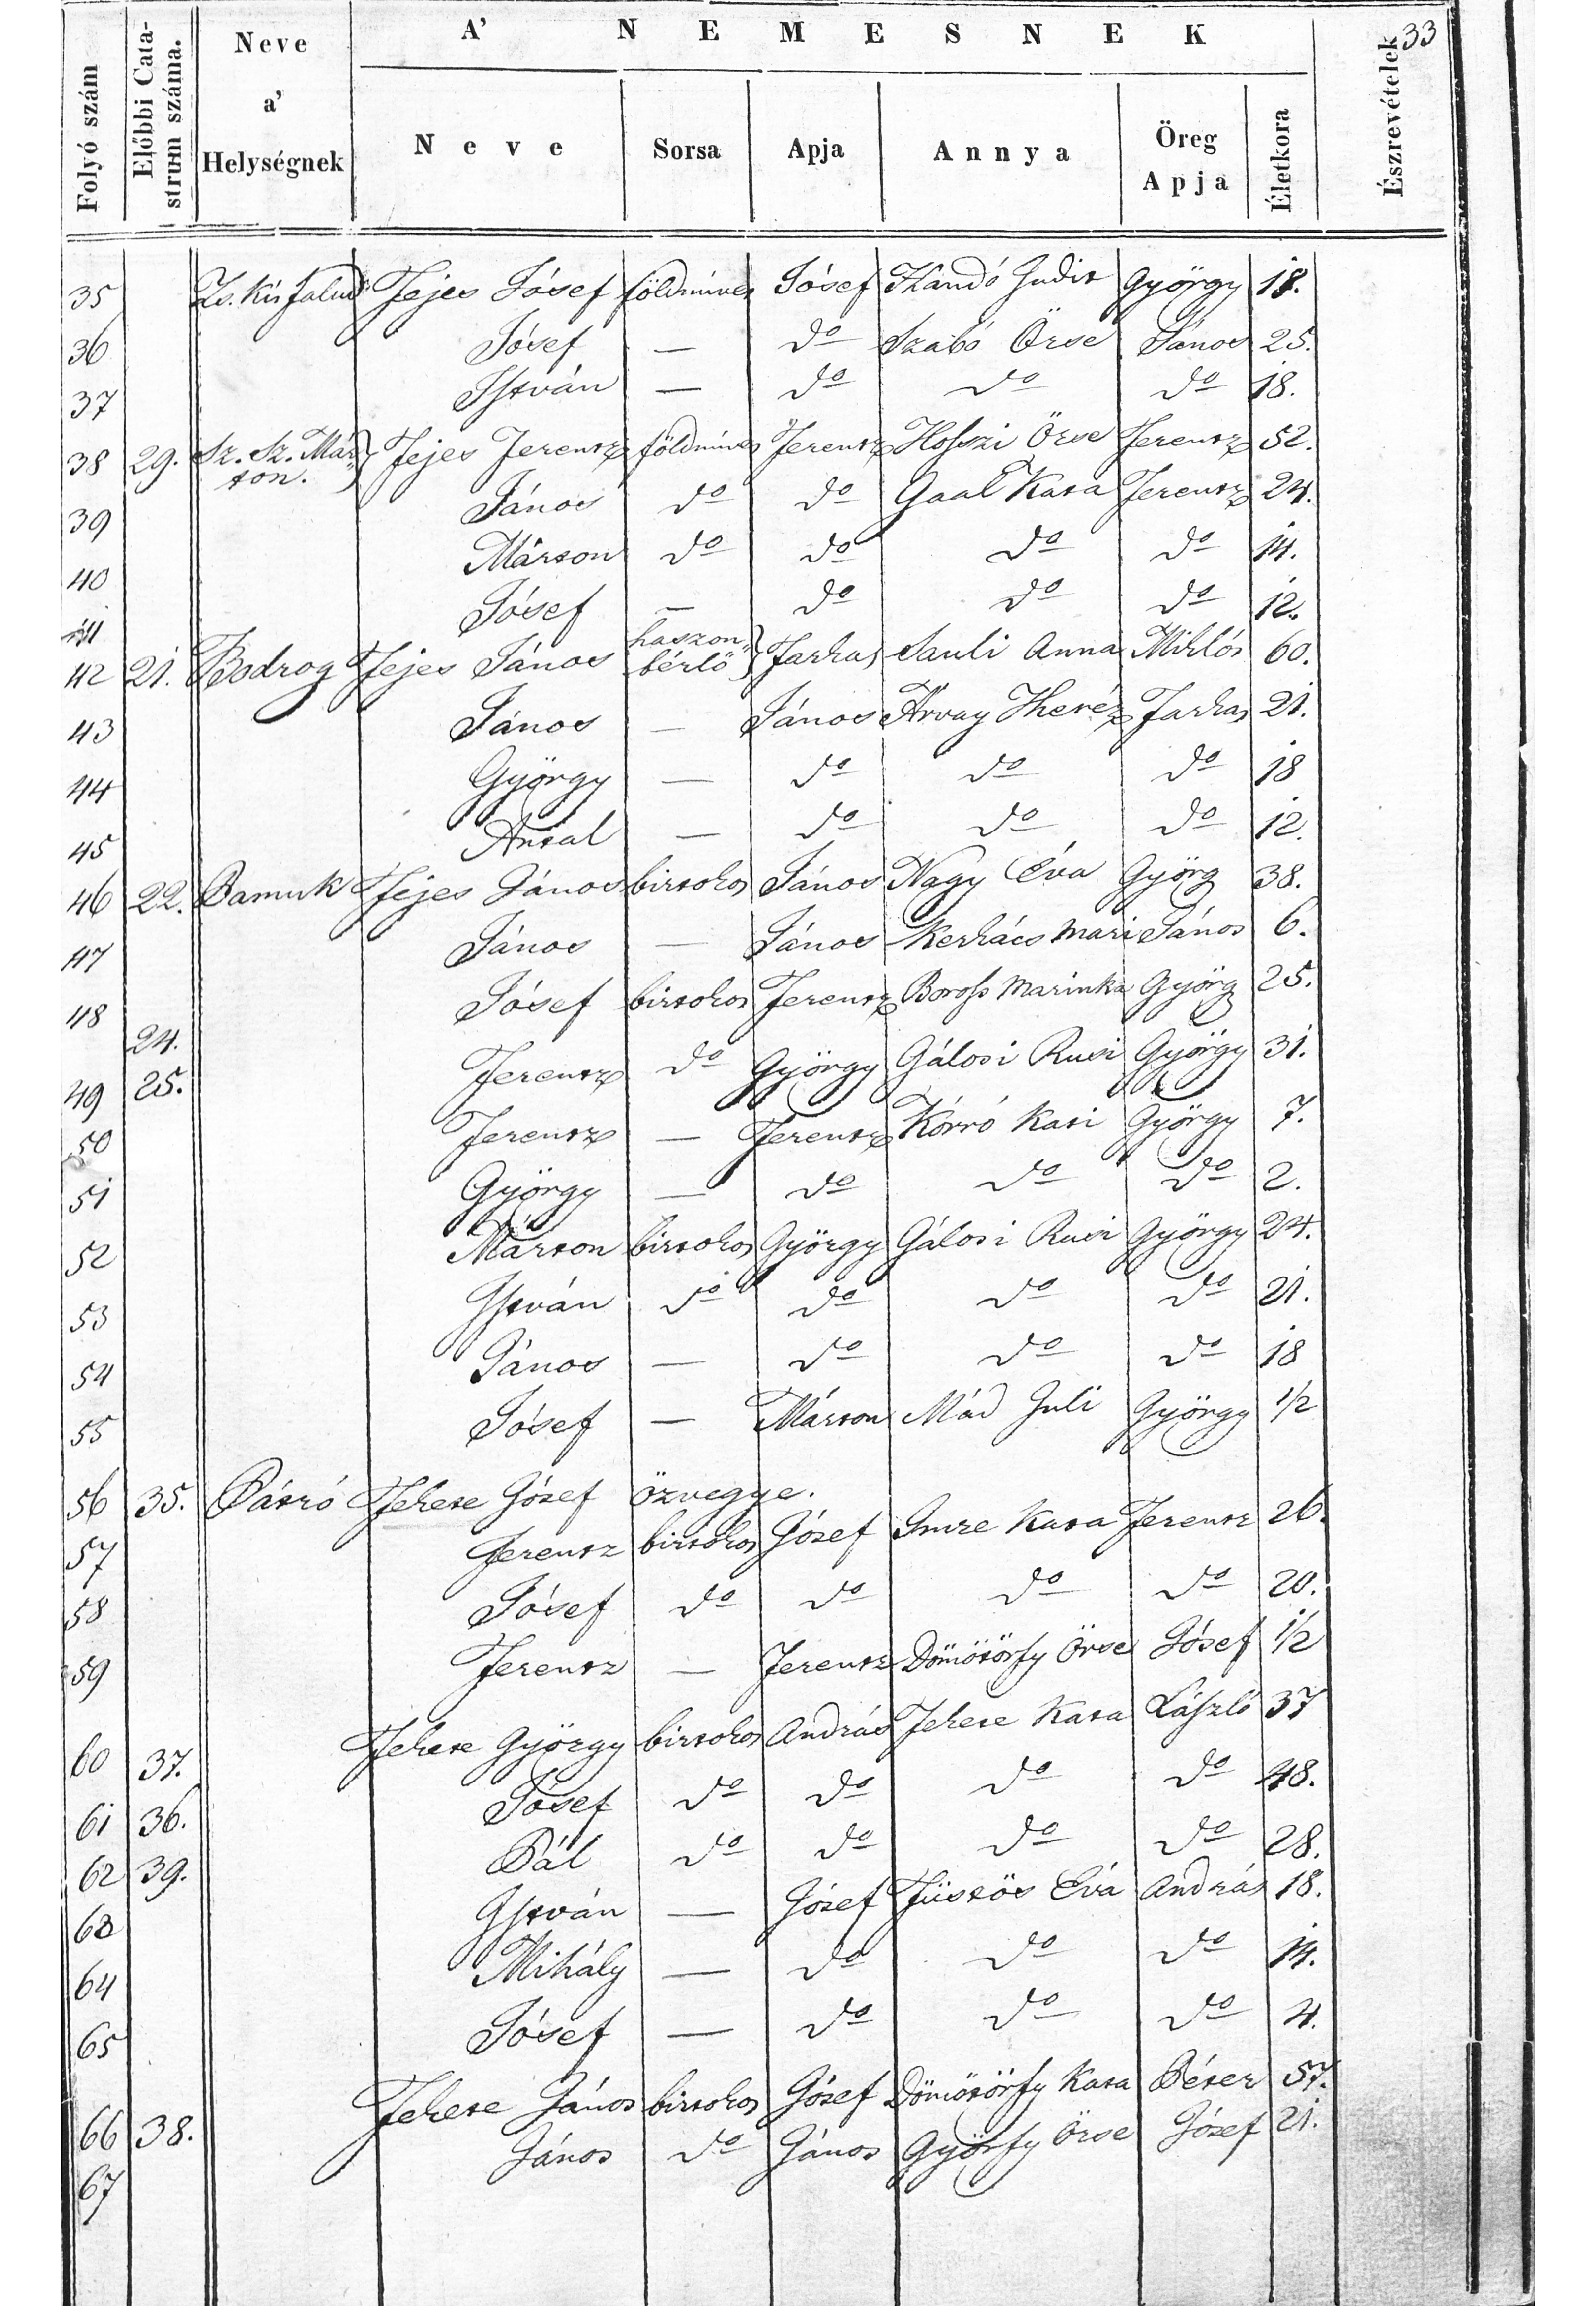 33
A' NEMESNEK
Folyó szám | Előbbi Catastrum száma. | Neve a' Helységnek | Neve | Sorsa | Apja | Annya | Öreg Apja | Életkora | Észrevételek
35 Zs. Kis falud Fejes Jósef földmives Jósef Kandó Judit György 18.
36 Jósef — do Szabó Örse János 25.
37 István — do do do 18.
38 29. Sz. Sz. Márton. Fejes Ferentz földmives Ferentz Hoszszi Örse Ferentz 52.
39 János do do Gaal Kata Ferentz 24.
40 Márton do do do do 14.
41 Jósef — do do do 12.
42 21. Bodrog Fejes János haszonbérlő Farkas Sauli Anna Miklós 60.
43 János — János Árvay Theréz Farkas 21.
44 György — do do do 18
45 Antal — do do do 12.
46 22. Pamuk Fejes János birtokos János Nagy Éva Györg 38.
47 János — János Kerkács Mari János 6.
48 Jósef birtokos Ferentz Boross Marinka Györg 25.
24.
49 25. Ferentz do György Gálosi Rusi György 31.
50 Ferentz — Ferentz Kórró Kati György 7.
51 György — do do do 2.
52 Márton birtokos György Gálosi Rusi György 24.
53 István do do do do 21.
54 János — do do do 18
55 Jósef — Márton Mád Juli György 1/2
56 35. Pátró Fekete Józef özvegye.
57 Ferentz birtokos Józef Imre Kata Ferentz 26.
58 Jósef do do do do 20.
59 Ferentz — Ferentz Dömötörfy Örse Jósef 1/2
60 37. Fekete György birtokos András Fekete Kata László 37
61 36. Jósef do do do do 48.
62 39. Pál do do do do 28.
63 István — Józef Füstös Éva András 18.
64 Mihály — do do do 14.
65 Jósef — do do do 4.
66 38. Fekete János birtokos Józef Dömötörfy Kata Péter 57.
67 János do János Györfy Örse Józef 21.